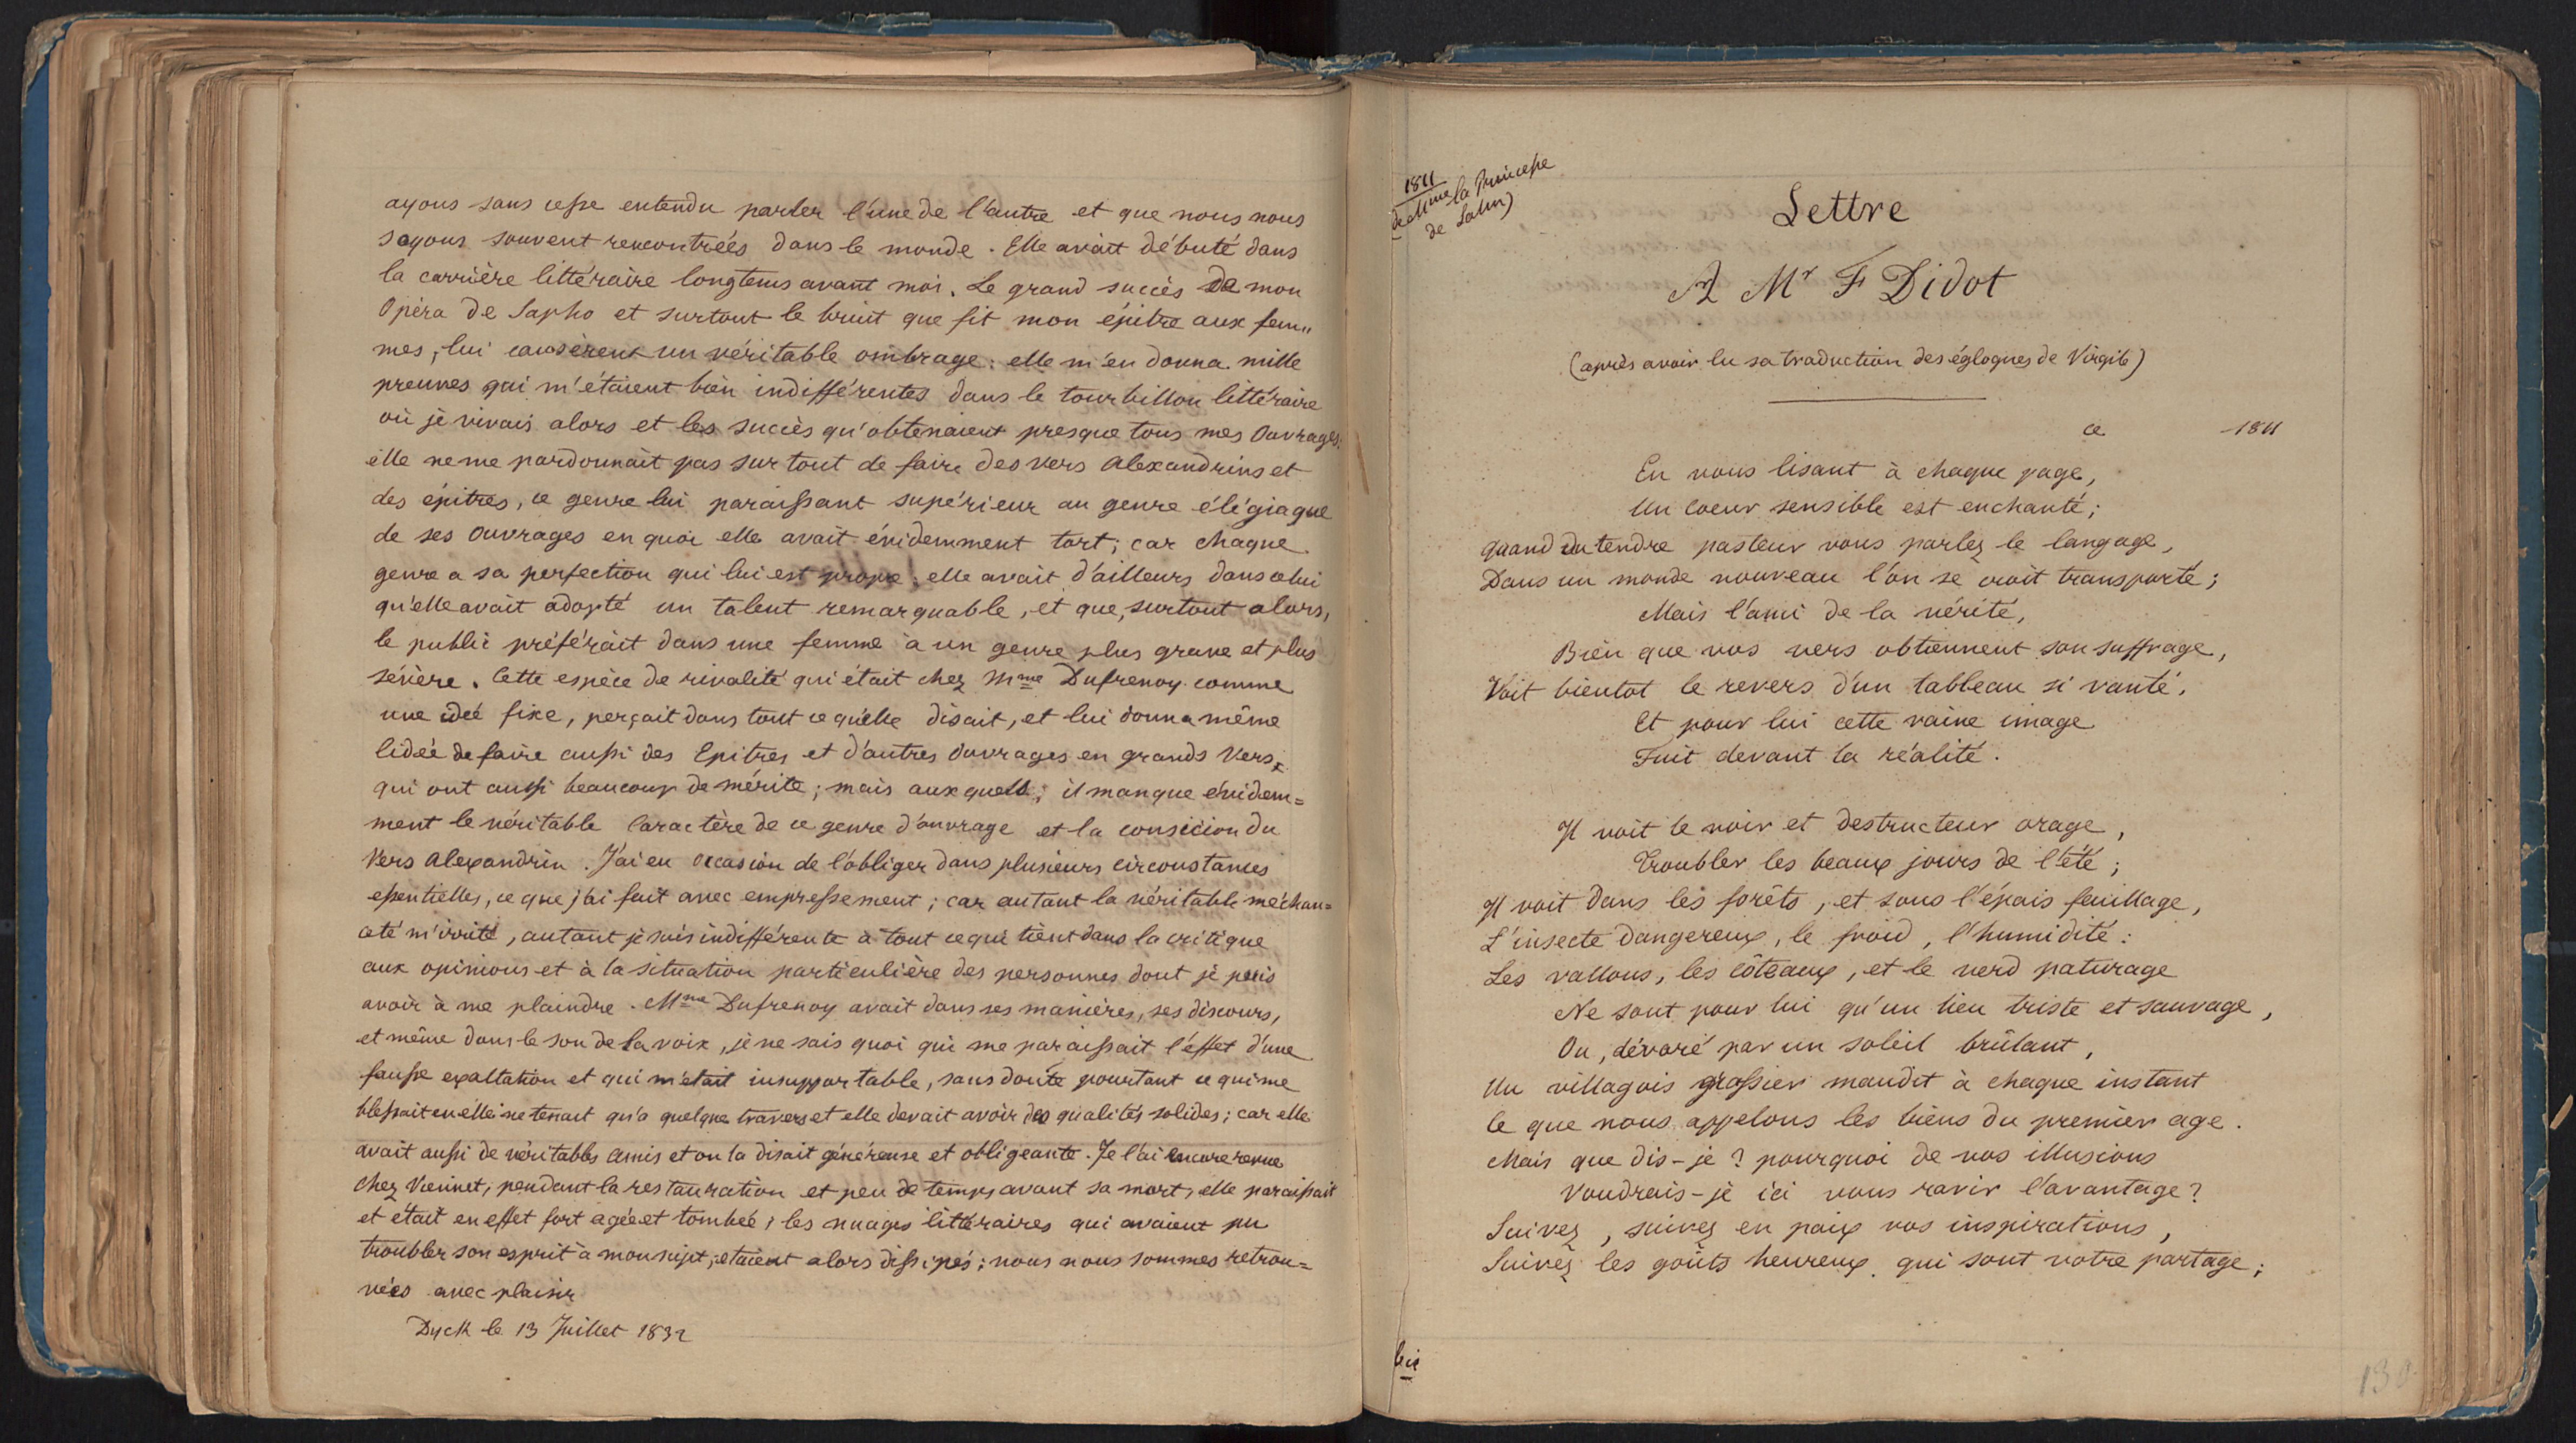 ayons sans cesse entendu parler l'une de l'autre et que nous nous
soyons souvent rencontrées dans le monde. Elle avait débuté dans
la carrière littéraire longtems avant moi. Le grand succès de mon
Opéra de Sapho et surtout le bruit que fit mon épitre aux fem„
mes, lui causèrent un véritable ombrage: elle m'en donna mille
preuves qui m'étaient bien indifférentes dans le tourbillon littéraire
où je vivais alors et les succès qu'obtenaient presque tous mes Ouvrages.
elle ne me pardonnait pas sur tout de faire des vers Alexandrins et
des épitres, ce genre lui paraissant supérieur au genre élégiaque
de ses Ouvrages en quoi elle avait évidemment tort; car chaque
genre a sa perfection qui lui est propre; elle avait d'ailleurs dans celui
qu'elle avait adopté un talent remarquable, et que, surtout alors,
le public préférait dans une femme à un genre plus grave et plus
sévère. Cette espèce de rivalité qui était chez Mme Dufrenoy comme
une idée fixe, perçait dans tout ce qu'elle disait, et lui donna même
lidée de faire aussi des Epitres et d'autres Ouvrages en grands Vers,
qui ont aussi beaucoup de mérite; mais auxquels, il manque évidem=
ment le véritable Caractère de ce genre d'ouvrage et la consicion du
Vers Alexandrin. J'ai eu Occasion de l'obliger dans plusieurs circonstances
essentielles, ce que j'ai fait avec empressement; car autant la véritable méchan=
ceté m'irrite, autant je suis indifférente à tout ce qui tient dans la critique
aux opinions et à la situation particulière des personnes dont je puis
avoir à me plaindre. Mme Dufrenoy avait dans ses manières, ses discours,
et même dans le son de sa voix, je ne sais quoi qui me paraissait l'effet d'une
fausse exaltation et qui m'était insupportable, sans doute pourtant ce qui me
blessait en elle ne tenait qu'a quelque travers et elle devait avoir des qualités solides; car elle
avait aussi de véritables amis et on la disait généreuse et obligeante. Je l'ai encore revue
chez Viennet, pendant la restauration et peu de temps avant sa mort, elle paraissait
et était en effet fort agée et tombée; les nuages littéraires qui avaient pu
troubler son esprit à mon sujet, etaient alors dissipés; nous nous sommes retrou=
vées avec plaisir
Dyck le 13 Juillet 1832
1811
(de Mme la Princesse
de Salm)
Lettre
A Mr F Didot
(après avoir lu sa traduction des églogues de Virgile)
ce 1811
En vous lisant à chaque page,
Un coeur sensible est enchanté;
Quand du tendre pasteur vous parlez le langage,
Dans un monde nouveau l'on se croit transporté;
Mais l'ami de la vérité,
Bien que vos vers obtiennent son suffrage,
Voit bientot le revers d'un tableau si vanté,
Et pour lui cette vaine image
Fuit devant la réalité.
Il voit le noir et destructeur orage,
Troubler les beaux jours de l'été;
Il voit dans les forêts, et sous l'épais feuillage,
L'insecte dangereux, le froid, l'humidité:
Les vallons, les côteaux, et le verd paturage
Ne sont pour lui qu'un lieu triste et sauvage,
Ou, dévoré par un soleil brûlant,
Un villageois grossier maudit à chaque instant
Ce que nous appelons les biens du premier age.
Mais que dis-je? pourquoi de vos illusions
Voudrais-je ici vous ravir l'avantage?
Suivez, suivez en paix vos inspirations,
Suivez les goûts heureux qui sont votre partage;
bis